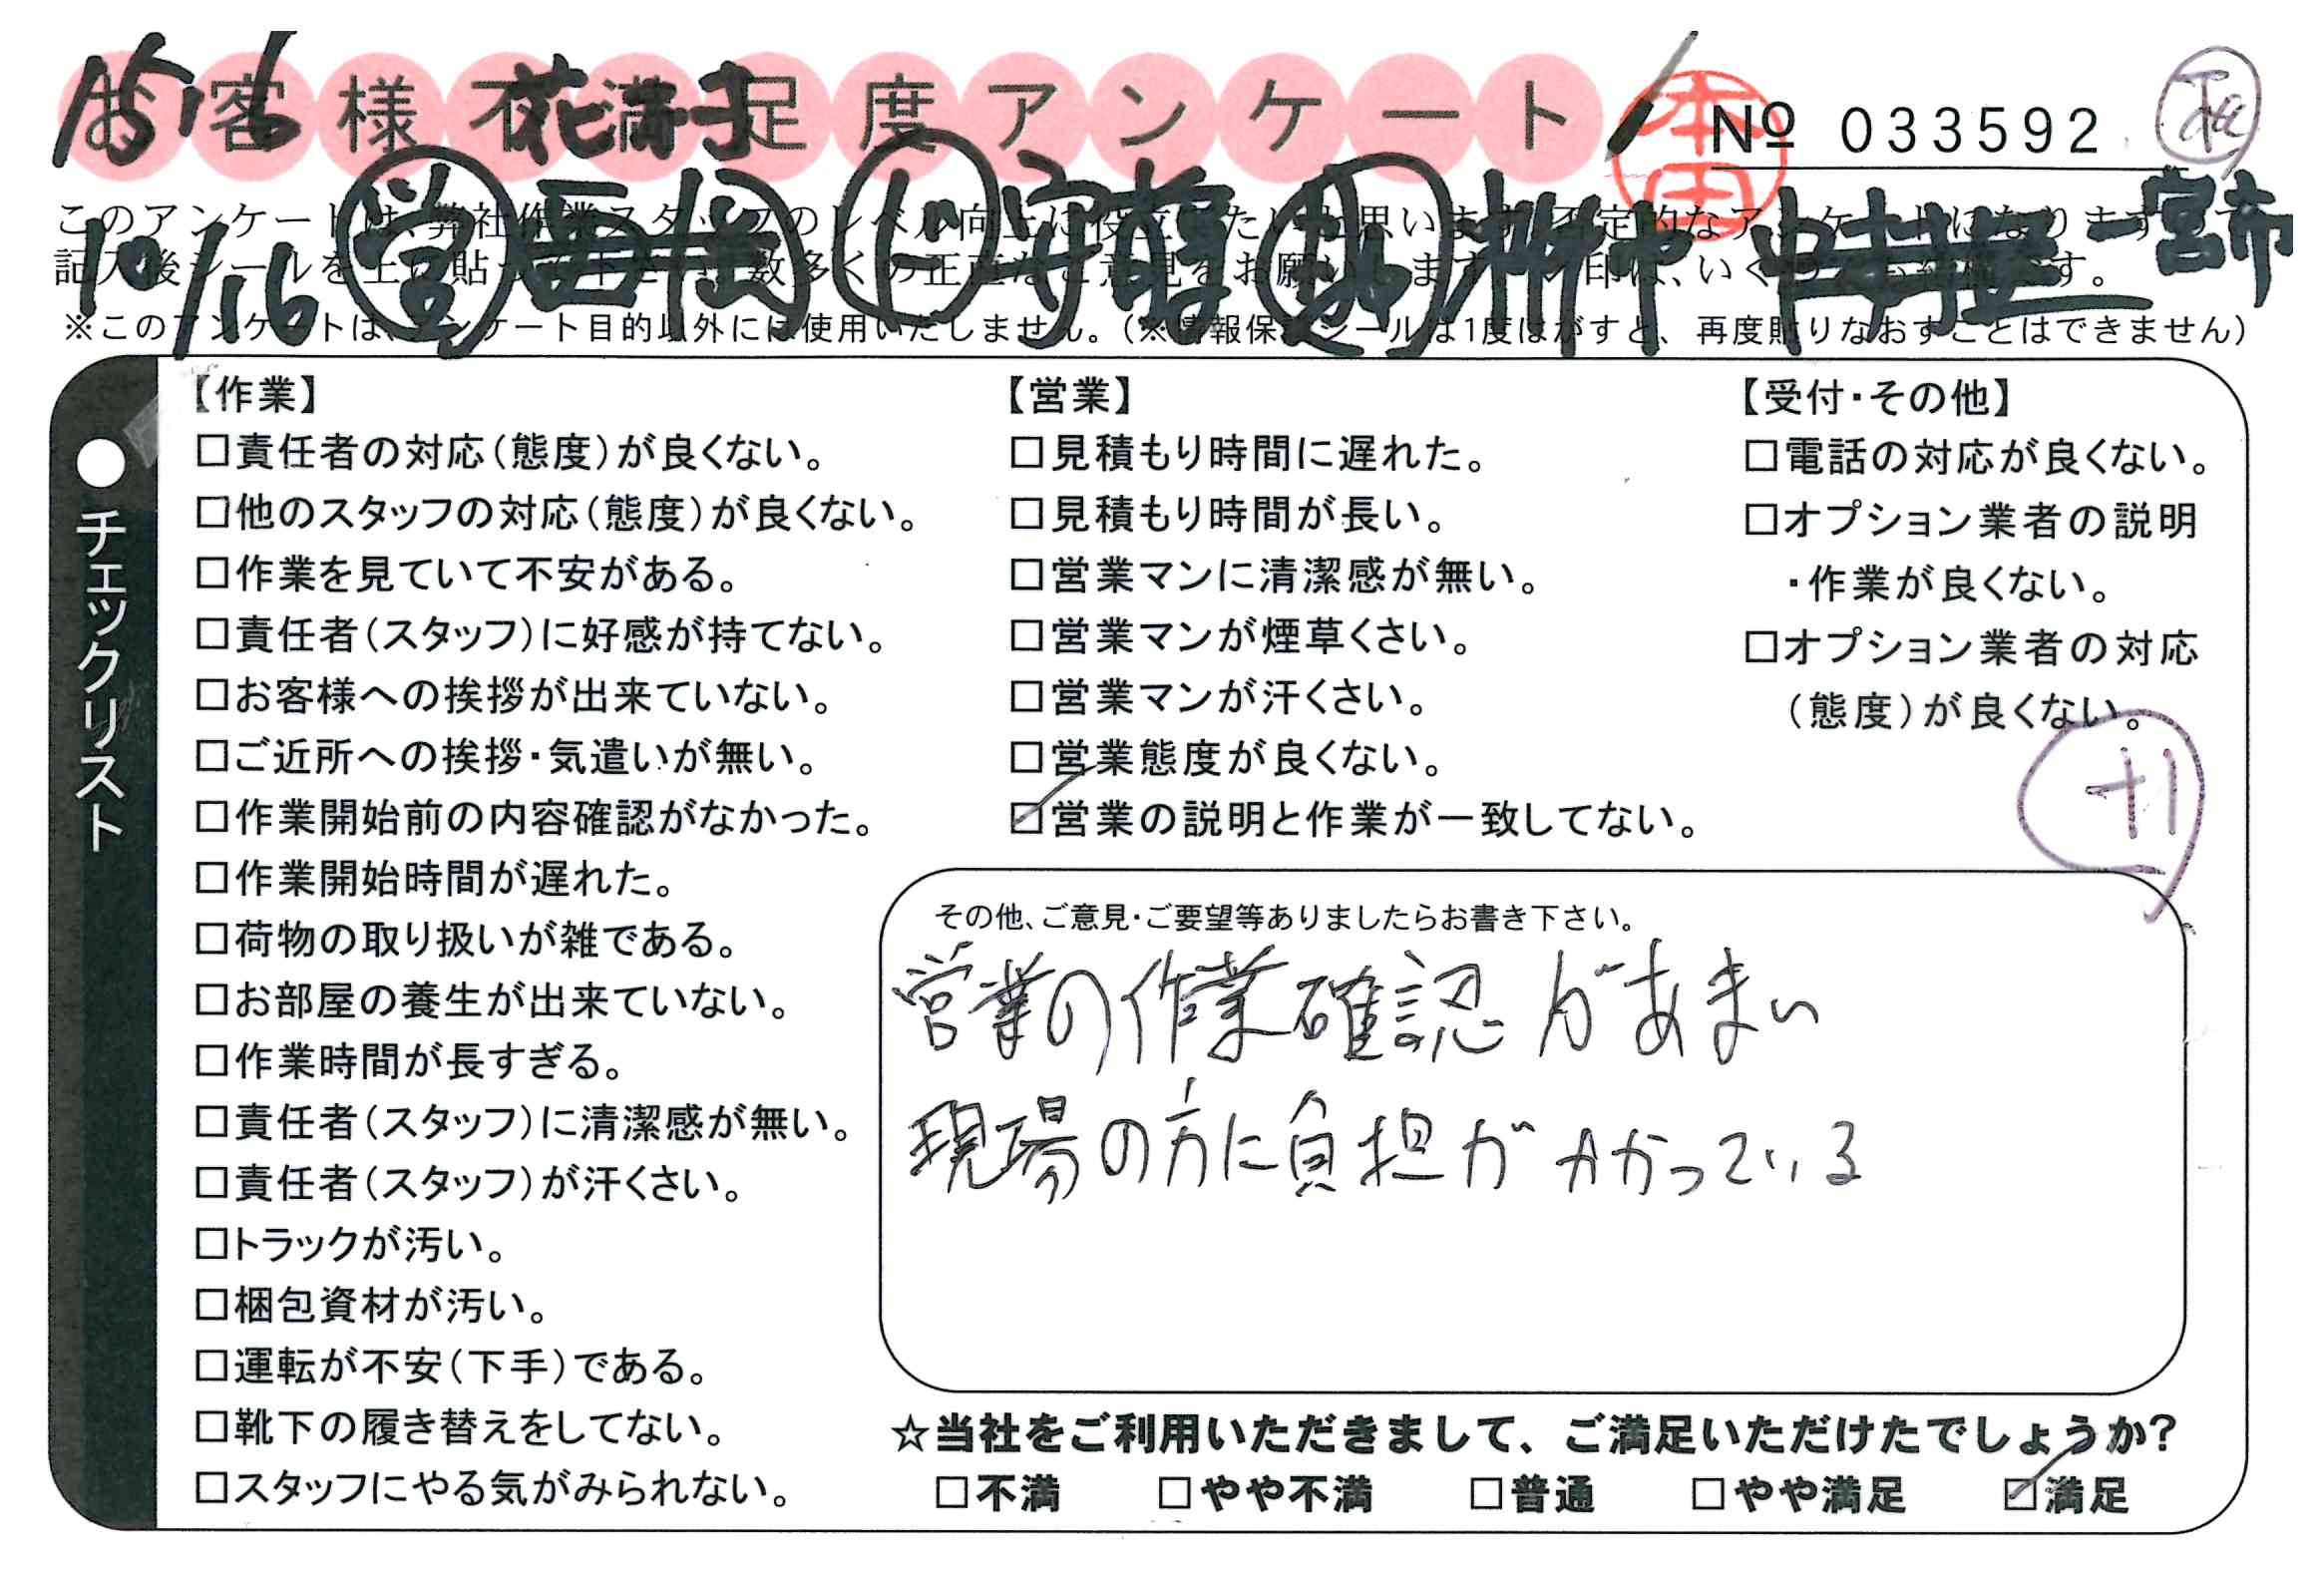 お客様不満足度アンケート
本田
№ 033592
10/16
一宮市
このアンケートは、弊社作業スタッフのレベル向上に役立
記入後シールを上に貼
※このアンケートは、アンケート目的以外には使用いたしません。（※情報保護シールは1度はがすと、再度貼りなおすことはできません）
●チェックリスト
【作業】
□責任者の対応（態度）が良くない。
□他のスタッフの対応（態度）が良くない。
□作業を見ていて不安がある。
□責任者（スタッフ）に好感が持てない。
□お客様への挨拶が出来ていない。
□ご近所への挨拶・気遣いが無い。
□作業開始前の内容確認がなかった。
□作業開始時間が遅れた。
□荷物の取り扱いが雑である。
□お部屋の養生が出来ていない。
□作業時間が長すぎる。
□責任者（スタッフ）に清潔感が無い。
□責任者（スタッフ）が汗くさい。
□トラックが汚い。
□梱包資材が汚い。
□運転が不安（下手）である。
□靴下の履き替えをしてない。
□スタッフにやる気がみられない。
【営業】
□見積もり時間に遅れた。
□見積もり時間が長い。
□営業マンに清潔感が無い。
□営業マンが煙草くさい。
□営業マンが汗くさい。
□営業態度が良くない。
☑営業の説明と作業が一致してない。
【受付・その他】
□電話の対応が良くない。
□オプション業者の説明
・作業が良くない。
□オプション業者の対応
（態度）が良くない。
その他、ご意見・ご要望等ありましたらお書き下さい。
営業の作業確認があまい
現場の方に負担がかかっている
☆当社をご利用いただきまして、ご満足いただけたでしょうか？
□不満 □やや不満 □普通 □やや満足 ☑満足